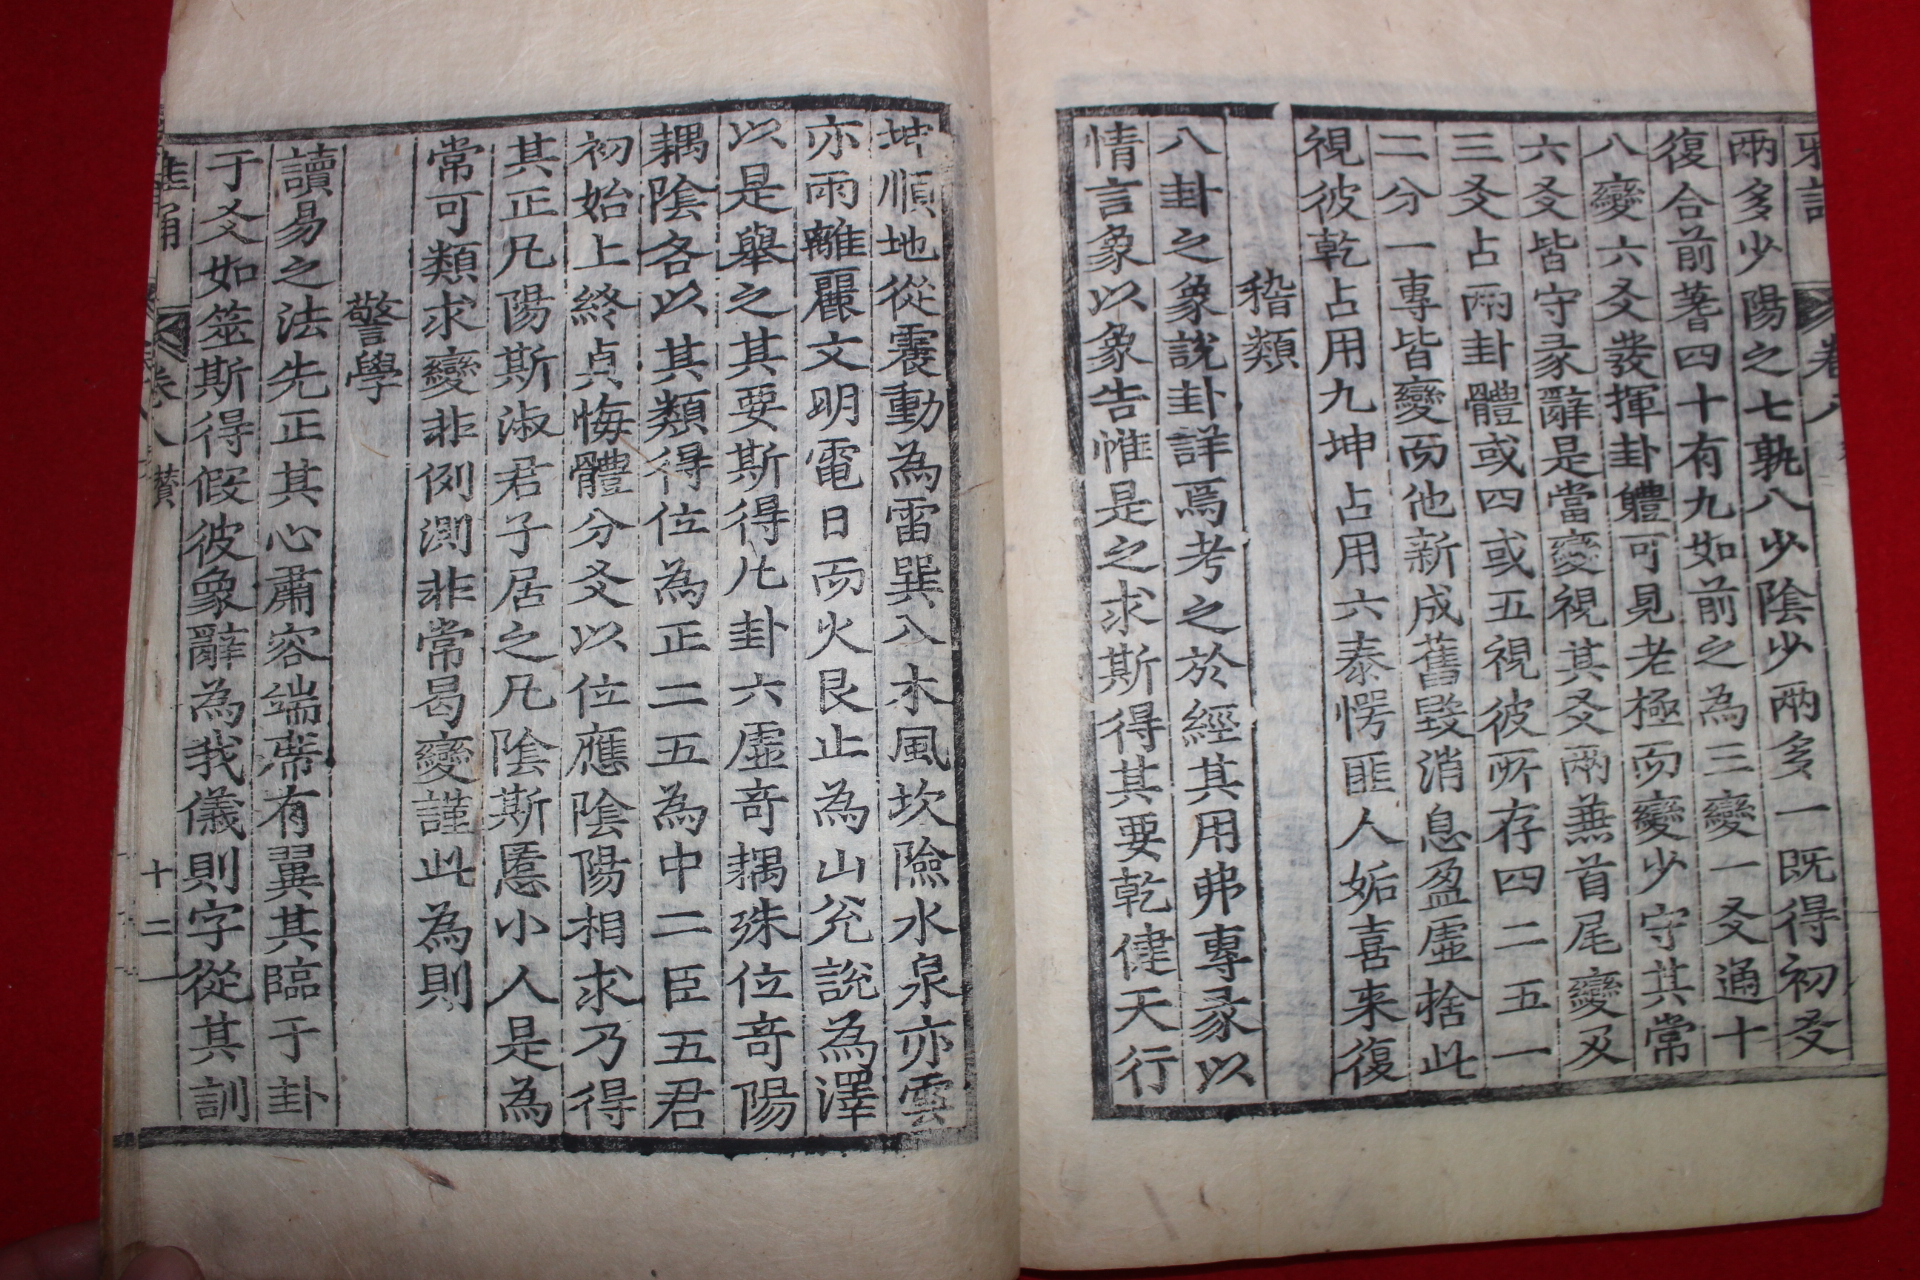 雅誦 卷八
兩多少陽之七孰八少陰少兩多一既得初爻
復合前蓍四十有九如前之為三變一爻通十
八變六爻發揮卦軆可見老極而變少守其常
六爻皆守彖辭是當變視其爻兩兼首尾變及
三爻占兩卦體或四或五視彼所存四二五一
二分一專皆變而他新成舊毀消息盈虛捨此
視彼乾占用九坤占用六泰愕匪人姤喜来復
稽類
八卦之象說卦詳焉考之於經其用弗專彖以
情言象以象告惟是之求斯得其要乾健天行
坤順地從震動為雷巽入木風坎險水泉亦雲
亦雨離麗文明電日而火艮止為山兊說為澤
以是舉之其要斯得凡卦六虛竒耦殊位竒陽
耦陰各以其類得位為正二五為中二臣五君
初始上終貞悔體分爻以位應陰陽相求乃得
其正凡陽斯淑君子居之凡陰斯慝小人是為
常可類求變非例測非常曷變謹此為則
警學
讀易之法先正其心肅容端席有翼其臨于卦
于爻如筮斯得假彼象辭為我儀則字從其訓
雅誦 卷八 贊 十二